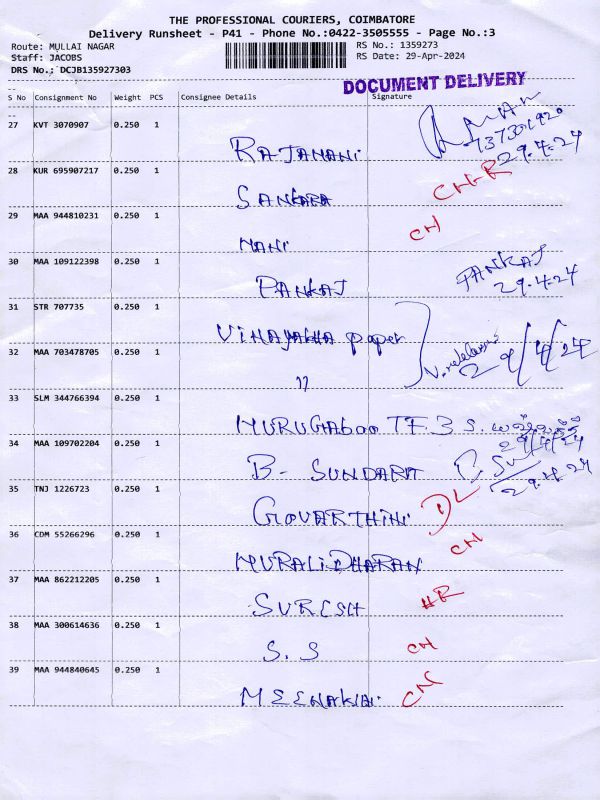 THE PROFESSIONAL COURIERS, COIMBATORE
Delivery Runsheet - P41 - Phone No.:0422-3505555 - Page No.:3
Route: MULLAI NAGAR
RS No.: 1359273
Staff: JACOBS
RS Date: 29-Apr-2024
DRS No.: DCJB135927303
DOCUMENT DELIVERY
S No Consignment No Weight PCS Consignee Details Signature
27 KVT 3070907 0.250 1
RAJAMANI
29.4.24
28 KUR 695907217 0.250 1
SANKARA
29 MAA 944810231 0.250 1
CH
MANI
30 MAA 109122398 0.250 1
PANKAJ PANKAJ
29.4.24
31 STR 707735 0.250 1
VINAYAKHA paper
29/4/24
32 MAA 703478705 0.250 1
"
33 SLM 344766394 0.250 1
MURUGABOO T.F. 3 S.
29/4/24
34 MAA 109702204 0.250 1
B- SUNDARA
29.4.24
35 TNJ 1226723 0.250 1
GOVARTHINI DL
36 CDM 55266296 0.250 1
CH
MURALIDHARAN
37 MAA 862212205 0.250 1
SURESH HR
38 MAA 300614636 0.250 1
S.S CH
39 MAA 944840645 0.250 1
MEENAKHI CH